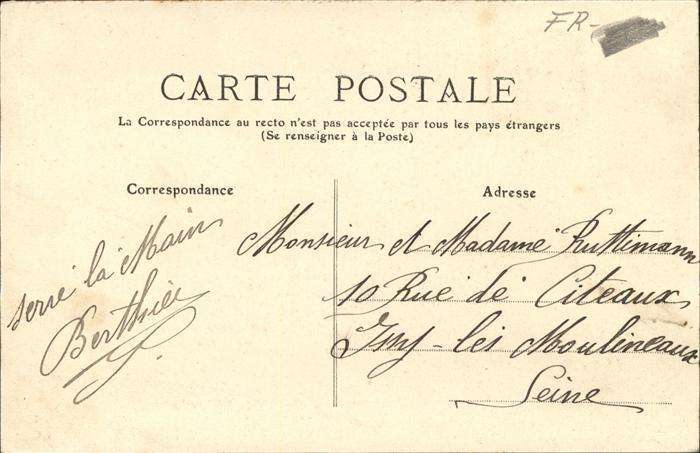 FR-
CARTE POSTALE
La Correspondance au recto n'est pas acceptée par tous les pays étrangers
(Se renseigner à la Poste)
Correspondance
Adresse
serre la Main
Berthier
Monsieur et Madame Ruttimann
10 Rue de Citeaux
Issy-les Moulineaux
Seine